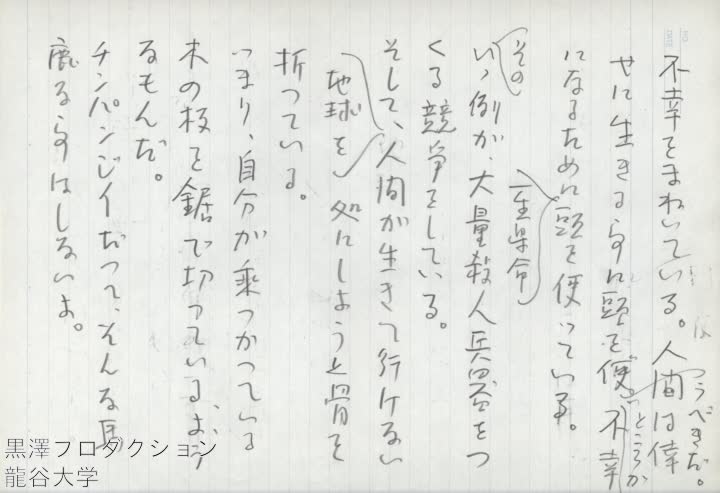 不幸をまねいている。人間は倖
せに生きる為に頭を使
うべきだ。
ところが
不幸
になるために頭を使っている。
一生県命
その
いゝ例が、大量殺人兵器をつ
くる競争をしている。
そして、人間が生きて行けない
地球を
処にしようと骨を
折っている。
つまり、自分が乗っかっている
木の枝を鋸で切っている様な
るもんだ。
チンパンジイだって、そんな馬
鹿な為はしないよ。
黒澤プロダクション
龍谷大学